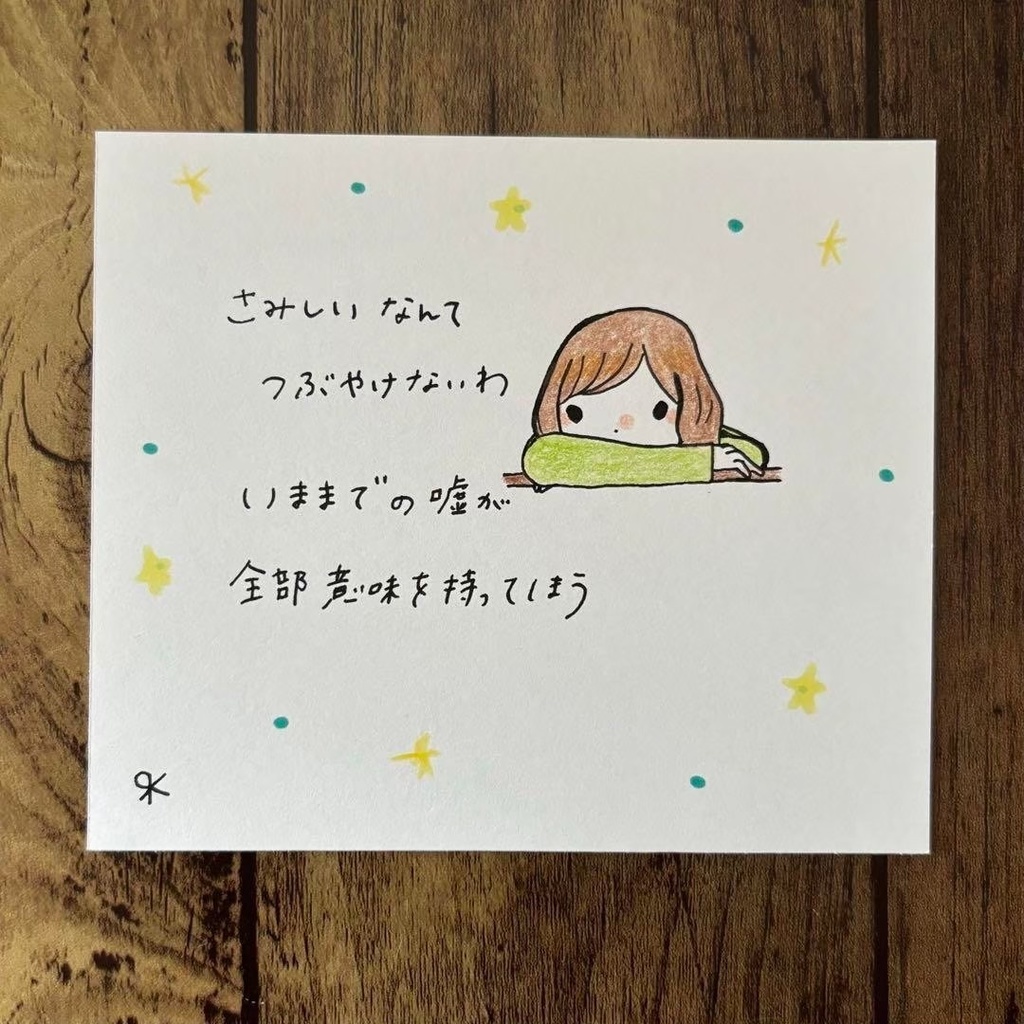 さみしい なんて
つぶやけないわ
いままでの嘘が
全部意味を持ってしまう